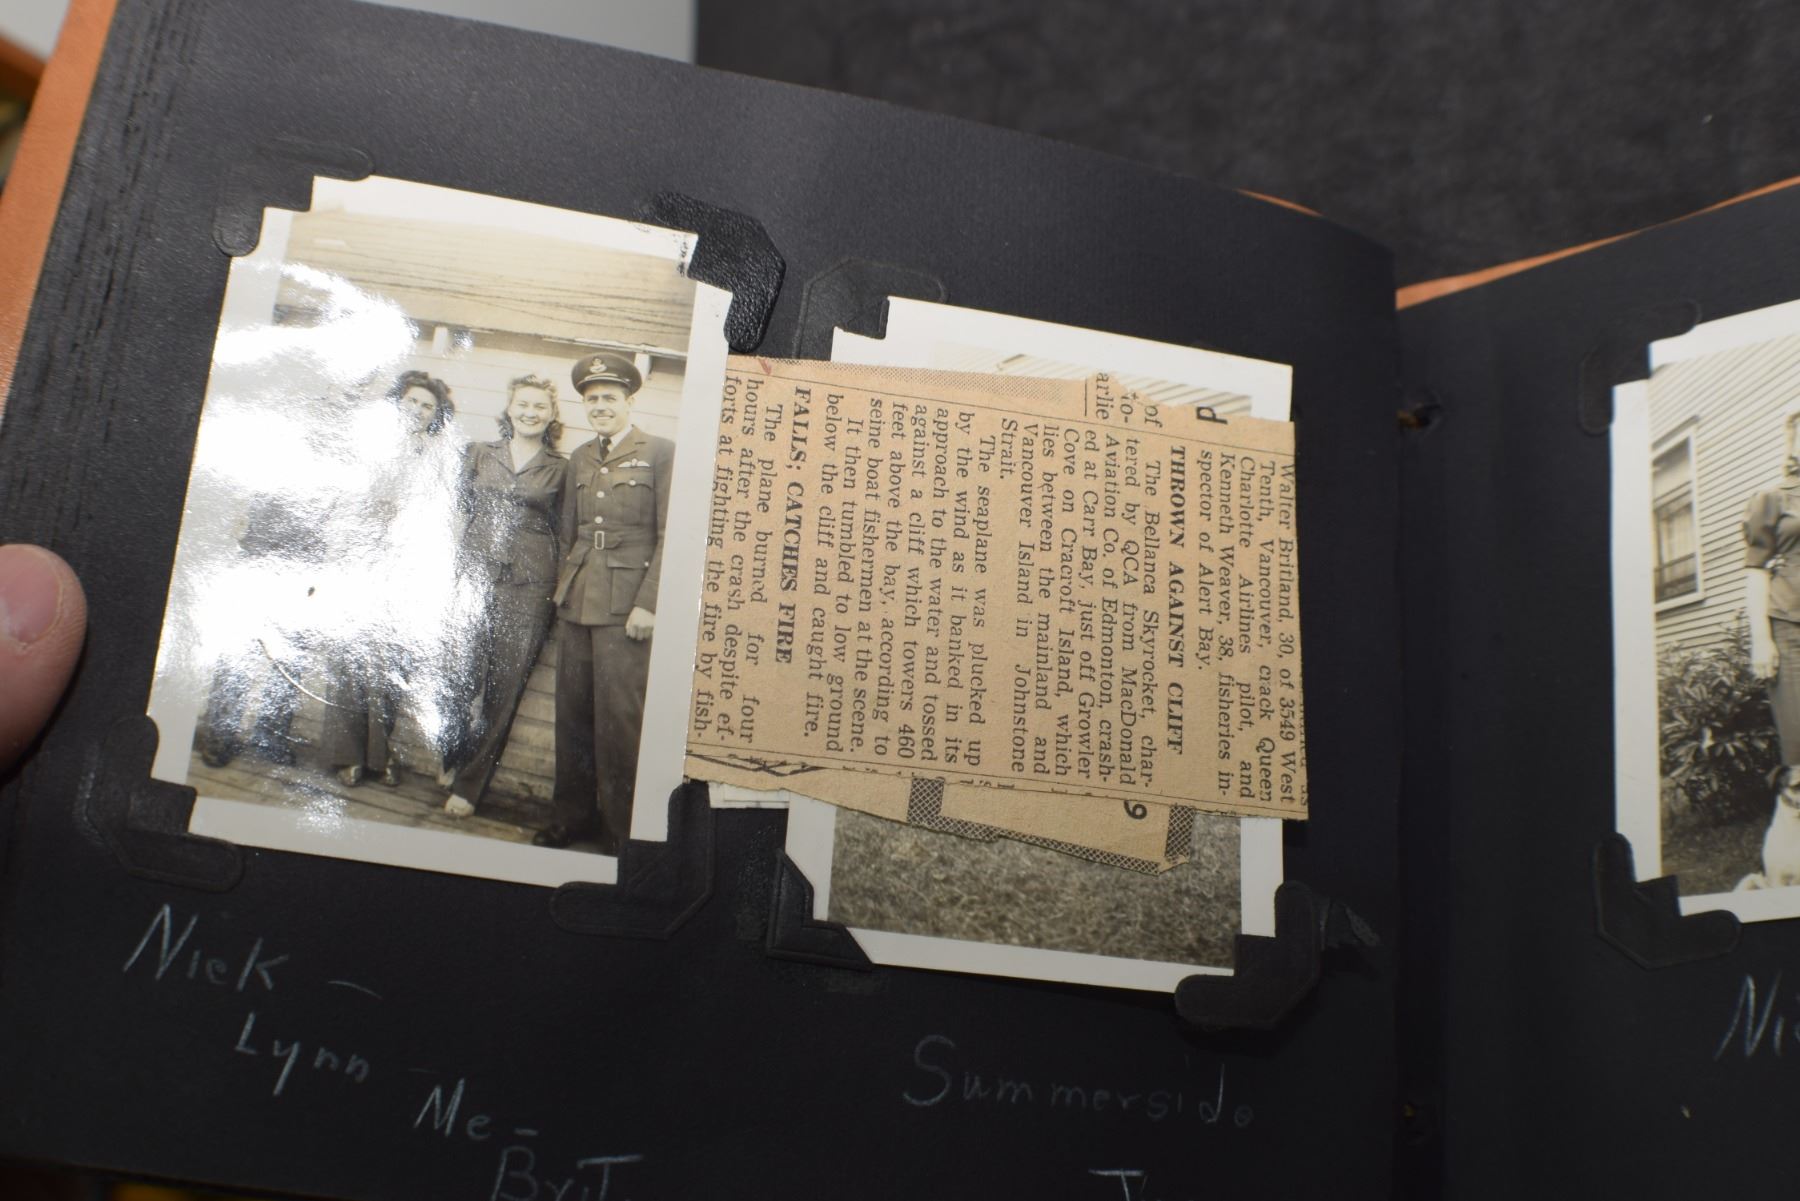 Walter Britland, 30, of 3549 West
Tenth, Vancouver, crack Queen
Charlotte Airlines pilot, and
Kenneth Weaver, 38, fisheries in-
spector of Alert Bay.
THROWN AGAINST CLIFF
The Bellanca Skyrocket, char-
tered by QCA from MacDonald
Aviation Co. of Edmonton, crash-
ed at Carr Bay, just off Growler
Cove on Cracroft Island, which
lies between the mainland and
Vancouver Island in Johnstone
Strait.
The seaplane was plucked up
by the wind as it banked in its
approach to the water and tossed
against a cliff which towers 460
feet above the bay, according to
seine boat fishermen at the scene.
It then tumbled to low ground
below the cliff and caught fire.
FALLS; CATCHES FIRE
The plane burned for four
hours after the crash despite ef-
forts at fighting the fire by fish-
d
of
to-
arlie
9
Nick -
Lynn - Me -
Brit
Summerside